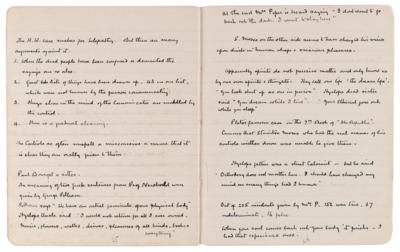 The H.H. case makes for telepathy. But there are many
arguments against it.
1. When the dead people have been suspected or demented the
sayings are so also.
2. Great lists of things have been drawn up. All in one list,
which were not known by the person communicating
3. Things clear in the mind of the Communicator are muddled by
the control.
4. There is a gradual clearing.
The Controls so often misspell & mispronounce a name that it
is clear they are orally given to them
Paul Bourget a writer.
In meaning of two Greek sentences from Prof Newbold were
given by George Pelham
Pelham says "We have an astral facsimile of our physical body"
Hyslop's Uncle said "I would not return for all I ever owned.
Music, flowers, walks, drives, pleasures of all kinds, books &
everything"
At the end Mrs Piper is heard saying - I don't want to go
back into the dark. I want to stay here"
S. Moses on the other side seems to have changed his views
upon devils in human shape & enormous pleasures.
Apparently spirits do not perceive matter and only know us
by our own spirits & thoughts. They call our life "the dream life".
"You look about of us as in prison" Hyslop's dead uncle
said "You dream while I live". "Your Etherial goes out
while you sleep"
Plato's famous cave in the 7th Book of "the Republic"
Curious that Stainton Moses who had the real names of his
controls written down was unable to give them.
Hyslop's father was a strict Calvinist - but he said
Orthodoxy does not matter here. I should have changed my
mind on many things had I known"
Out of 205 incidents given by Mrs P. 152 were true, 37
indeterminate, 16 false
When your soul comes back into your body it pricks - I
had that experience once.